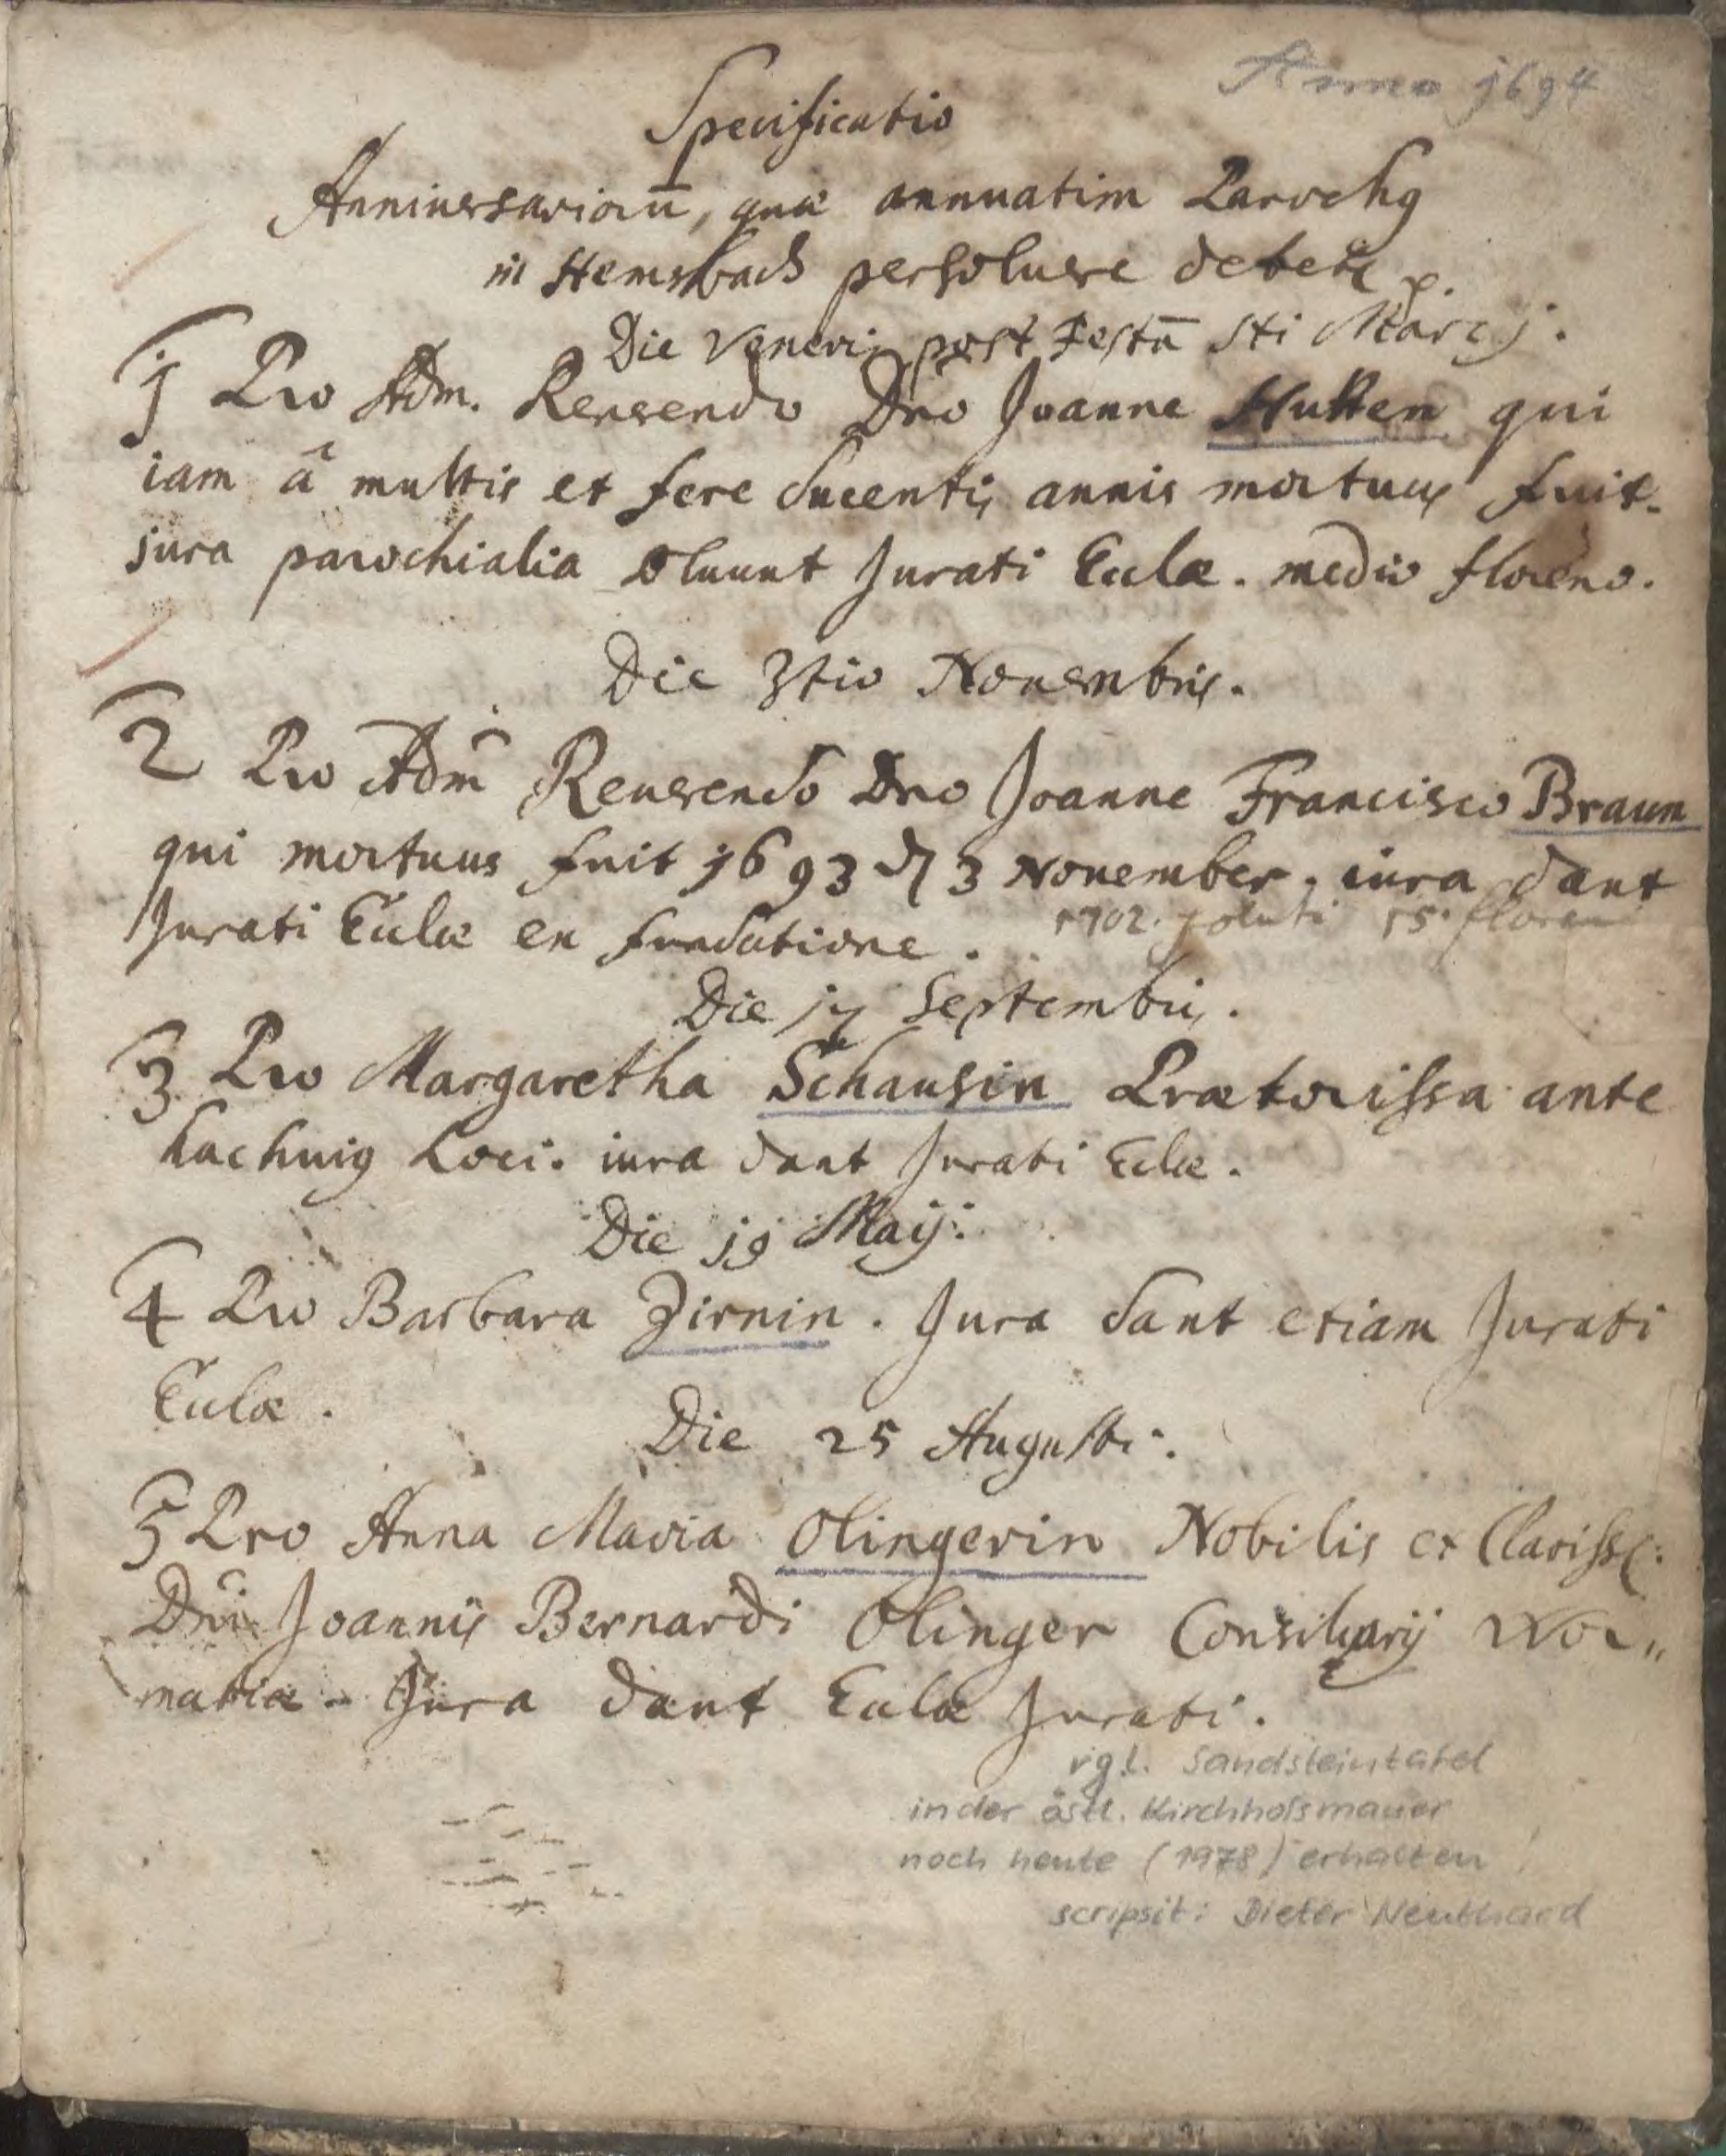 Anno 1694
Specificatio
Anniversariorū, quæ annuatim Parochg
in Hemsbach persoluere debet
Die Veneris post Festū Sti Marci.
1 Pro Adm. Reverendo Dnō Joanne Hutten qui
iam â multis et fere ducentis annis mortuus fuit.
jura parochialia soluunt Jurati Ecclæ. medio floreno.
Die 3tio Nouembris.
2 Pro Adm̄ Reuerendo Dno Joanne Francisco Braun
qui mortuus fuit 1693 d 3 November. iura dant
Jurati Eccłæ ex fundatione. 1702. soluti 15. floren
Die 17 Septembris.
3 Pro Margaretha Schausin Prætorissa ante
hac huig Loci. iura dant Jurati Eclæ.
Die 19 Maij.
4 Pro Barbara Zirnin. Jura dant etiam Jurati
Eccłæ.
Die 25 Augusti.
5 Pro Anna Maria Olingerin Nobilis et Clariss:
Dni Joannis Bernardi Olinger Consiliarij Wor„
matiæ. Jura dant Eccłæ Jurati.
vgl. Sandsteintafel
in der östl. Kirchhofsmauer
noch heute (1978) erhalten!
scripsit: Dieter Neuthard